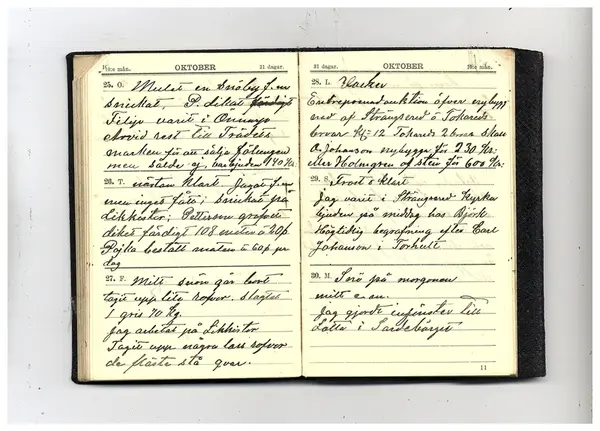 10:de mån. OKTOBER 31 dagar.
25. O. Mulet en snöby f.m
snickat. P. dikat färdigt
Filip varit i Önnarp
Arvid rest till Trädets
marken för att sälja fölungen
men sålde ej, var bjuden 140 Kr.
26. T. nästan klart. Jagat f.m
men inget fått; snickat på
Likkistor; Petterson grofvet
diket färdigt 108 meter à 20 p.
Pojke bestått maten à 60 p. pr
dag
27. F. Milt snön går bort
tagit upp lite rofvor. slagtat
1 gris 70 Kg.
Jag arbetat på Likkistor
Tagit upp några lass rofvor
de flästa stå qvar.
31 dagar. OKTOBER 10:de mån.
28. L. Vacker
Entreprenadauktion öfver nybygg
nad af Strängsered & Tokareds
broar Kl 12 Tokareds 2 broar skall
A. Johanson nybygga för 230 Kr:
eller Holmgren af sten för 600 Kr:
29. S. Frost o klart
Jag varit i Strängsered Kyrka
bjuden på middag hos Björk
Högtidlig begrafning efter Carl
Johanson i Torhult
30. M. Snö på morgonen
milt e.m.
Jag gjort infönster till
Lotta i
11